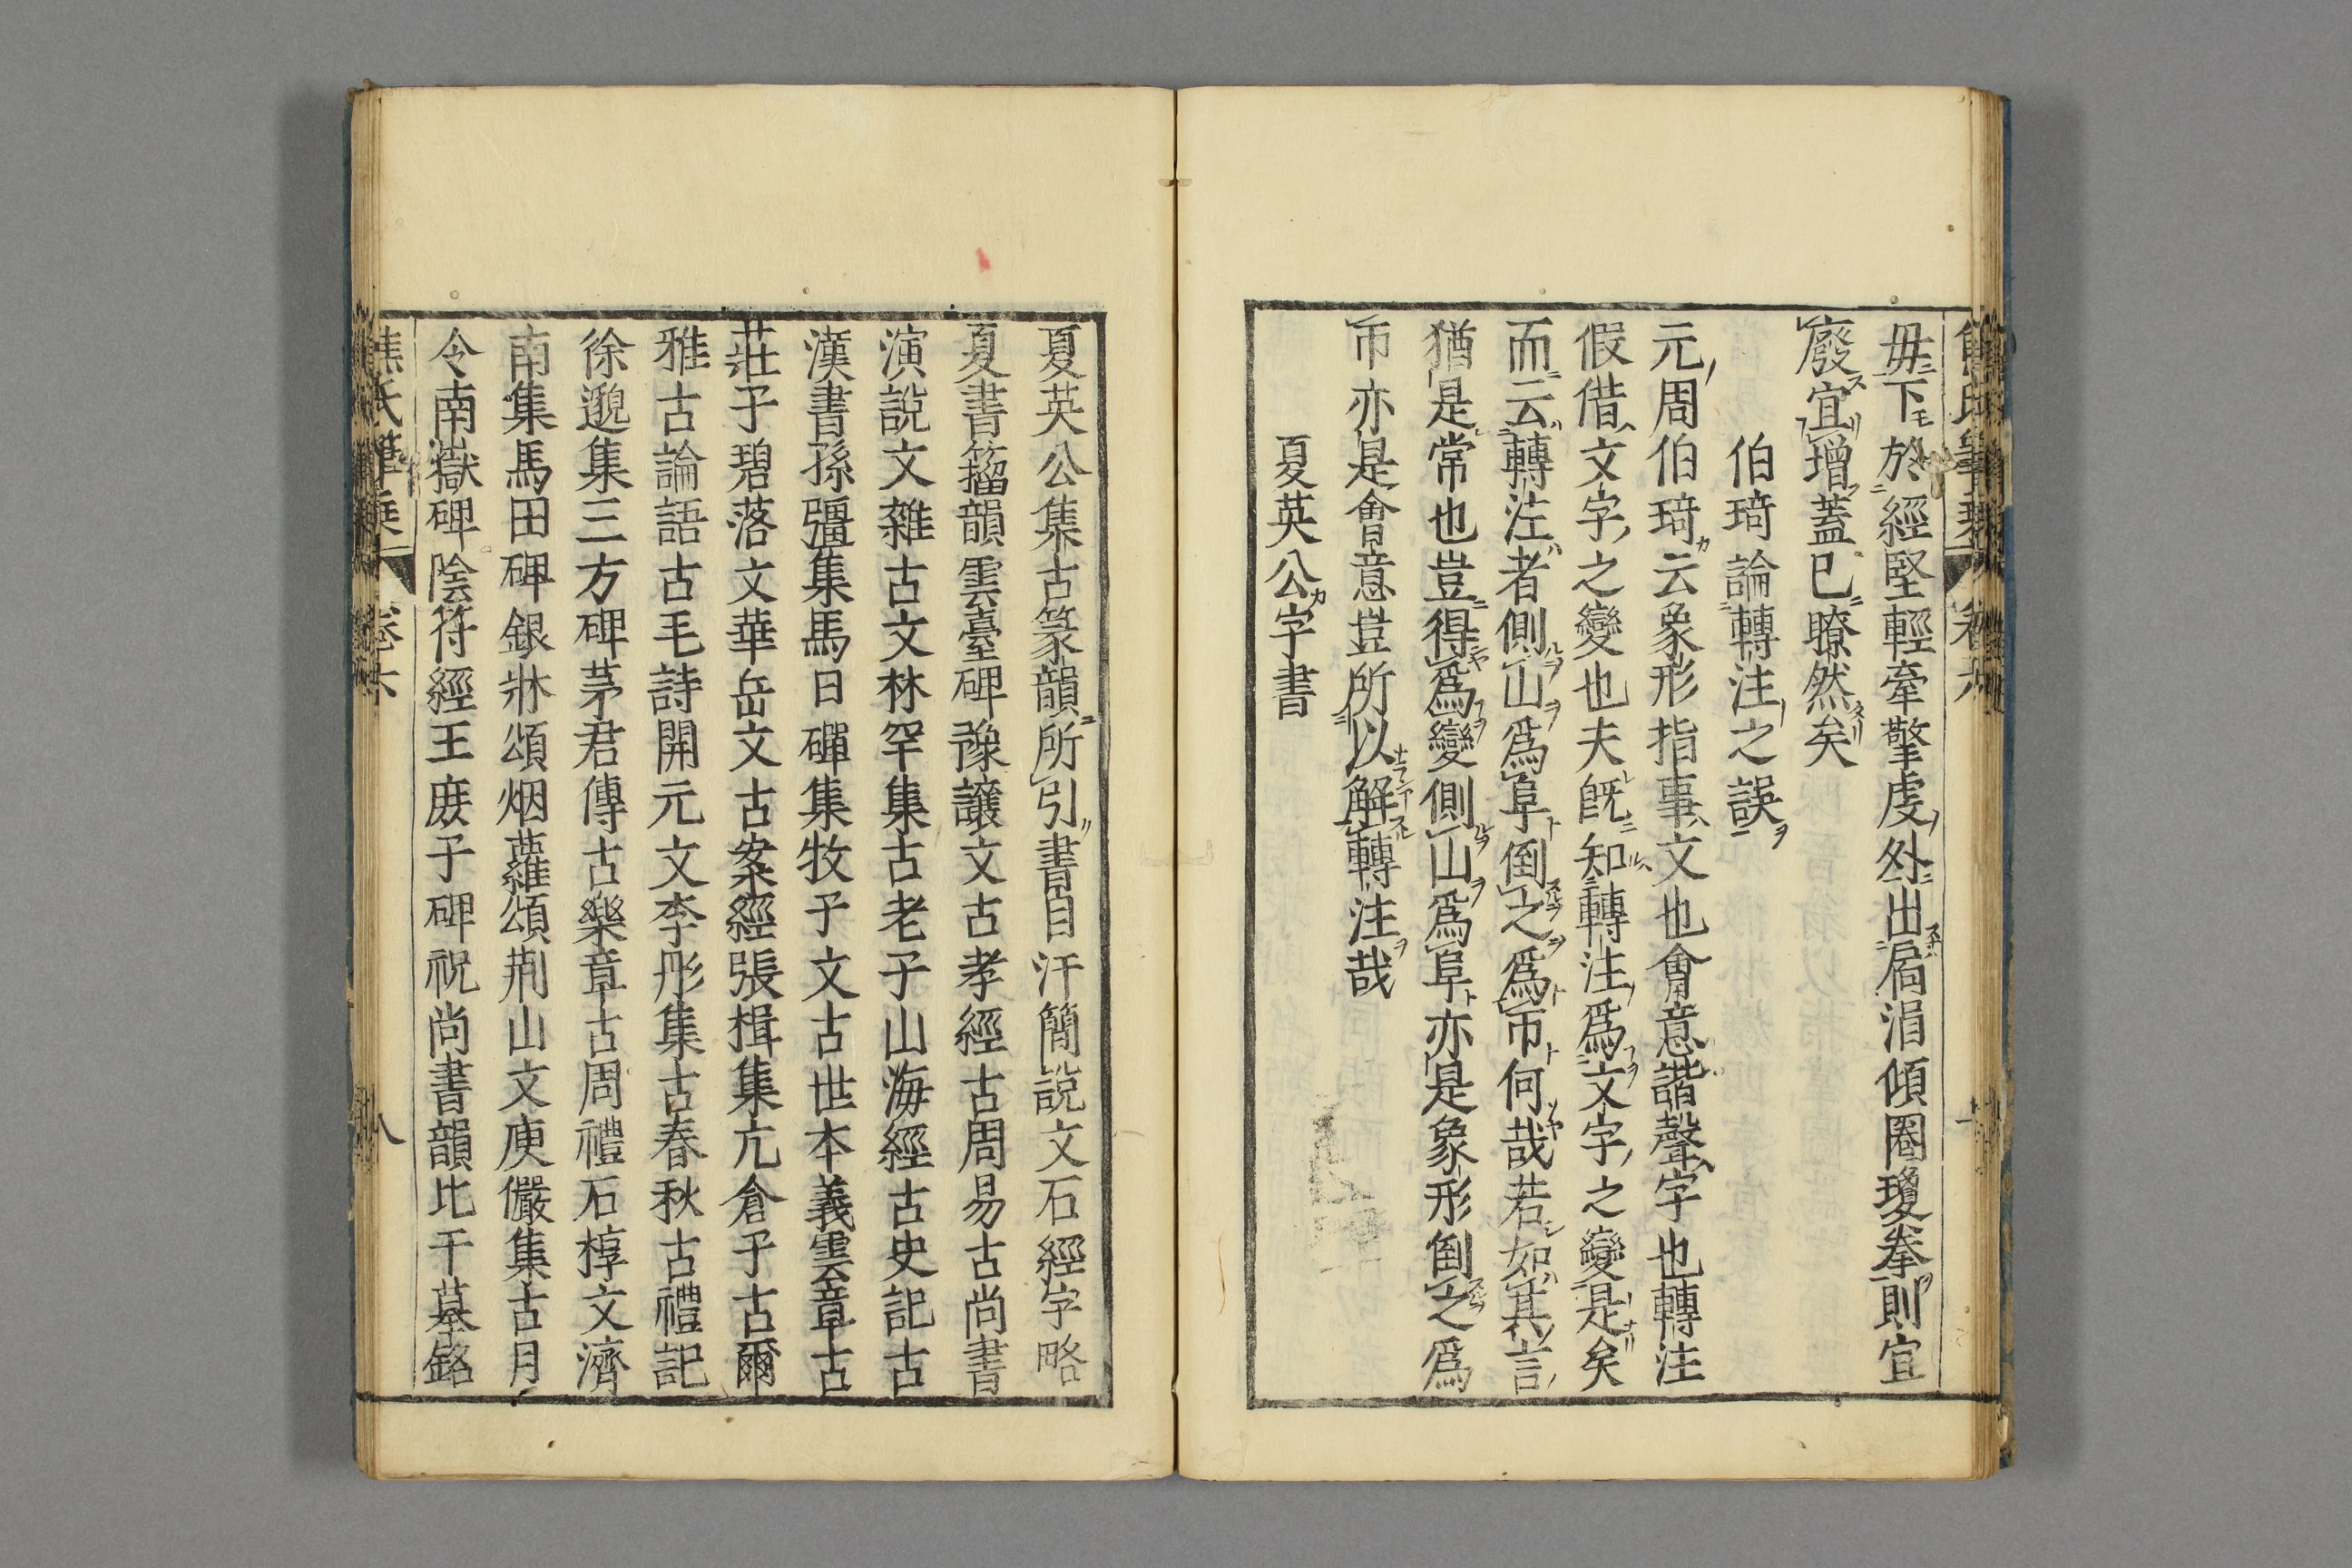 毋下於經堅輕牽擎虔外出扄涓傾圈瓊拳則宜
廢宜增蓋已瞭然矣
伯琦論轉注之誤
元周伯琦云象形指事文也會意諧聲字也轉注
假借文字之變也夫旣知轉注爲文字之變是矣
而云轉注者側山爲𨸏倒之爲帀何哉若如其言
猶是常也豈得爲變側山爲𨸏亦是象形倒之爲
帀亦是會意豈所以解轉注哉
夏英公字書
夏英公集古篆韻所引書目汗簡說文石經字略
夏書籀韻雲臺碑豫讓文古孝經古周易古尚書
演說文雜古文林罕集古老子山海經古史記古
漢書孫彊集馬日磾集牧子文古世本義雲章古
莊子碧落文華岳文古案經張揖集亢倉子古爾
雅古論語古毛詩開元文李彤集古春秋古禮記
徐邈集三方碑茅君傳古樂章古周禮石椁文濟
南集馬田碑銀牀頌烟蘿頌荆山文庾儼集古月
令南嶽碑陰符經王庶子碑祝尚書韻比干墓銘
焦氏筆乘 卷六 八